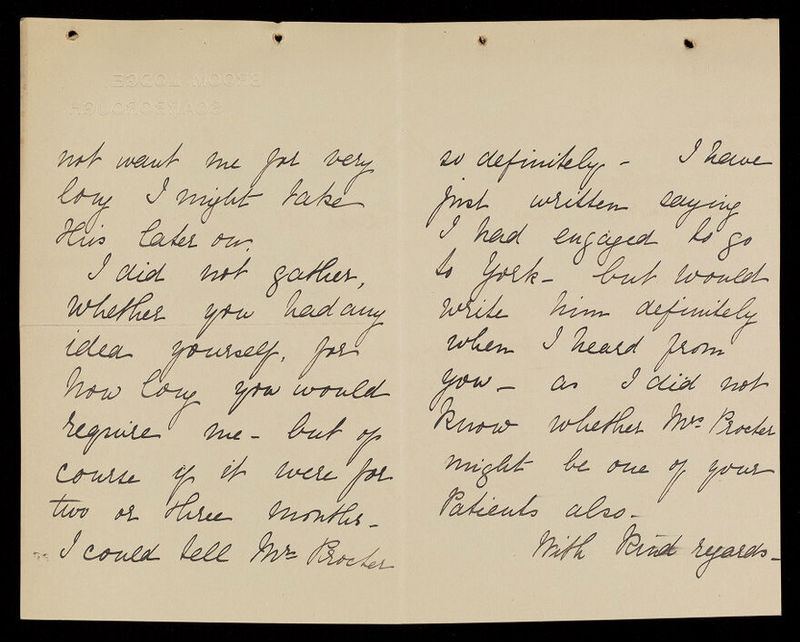 BROOM LODGE,
SCARBOROUGH.
not want me for very
long I might take
this later on.
I did not gather,
whether you had any
idea yourself, for
how long you would
require me - but of
course if it were for
two or three months -
I could tell Mrs Procter
so definitely - I have
just written saying
I had engaged to go
to York - but would
write him definitely
when I heard from
you - as I did not
know whether Mrs Procter
might be one of your
Patients also -
With kind regards -